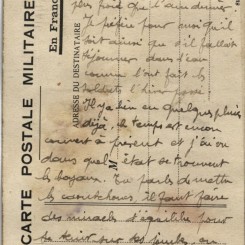 CARTE POSTALE MILITAIRE
En Franc
ADRESSE DU DESTINATAIRE
plus froid que l'an dernier.
Je préfère pour moi qu'il
soit ainsi que s'il fallait
séjourner dans l'eau
comme l'ont fait les
soldats l'hiver passé
Il y a bien eu quelques pluies
déjà, le temps est encore
couvert à présent et j'ai vu
dans quel état se trouvent
les boyaux. Tu parles de mettre
les caoutchoucs, il faut faire
des miracles d'équilibre pour
se tenir sur ses